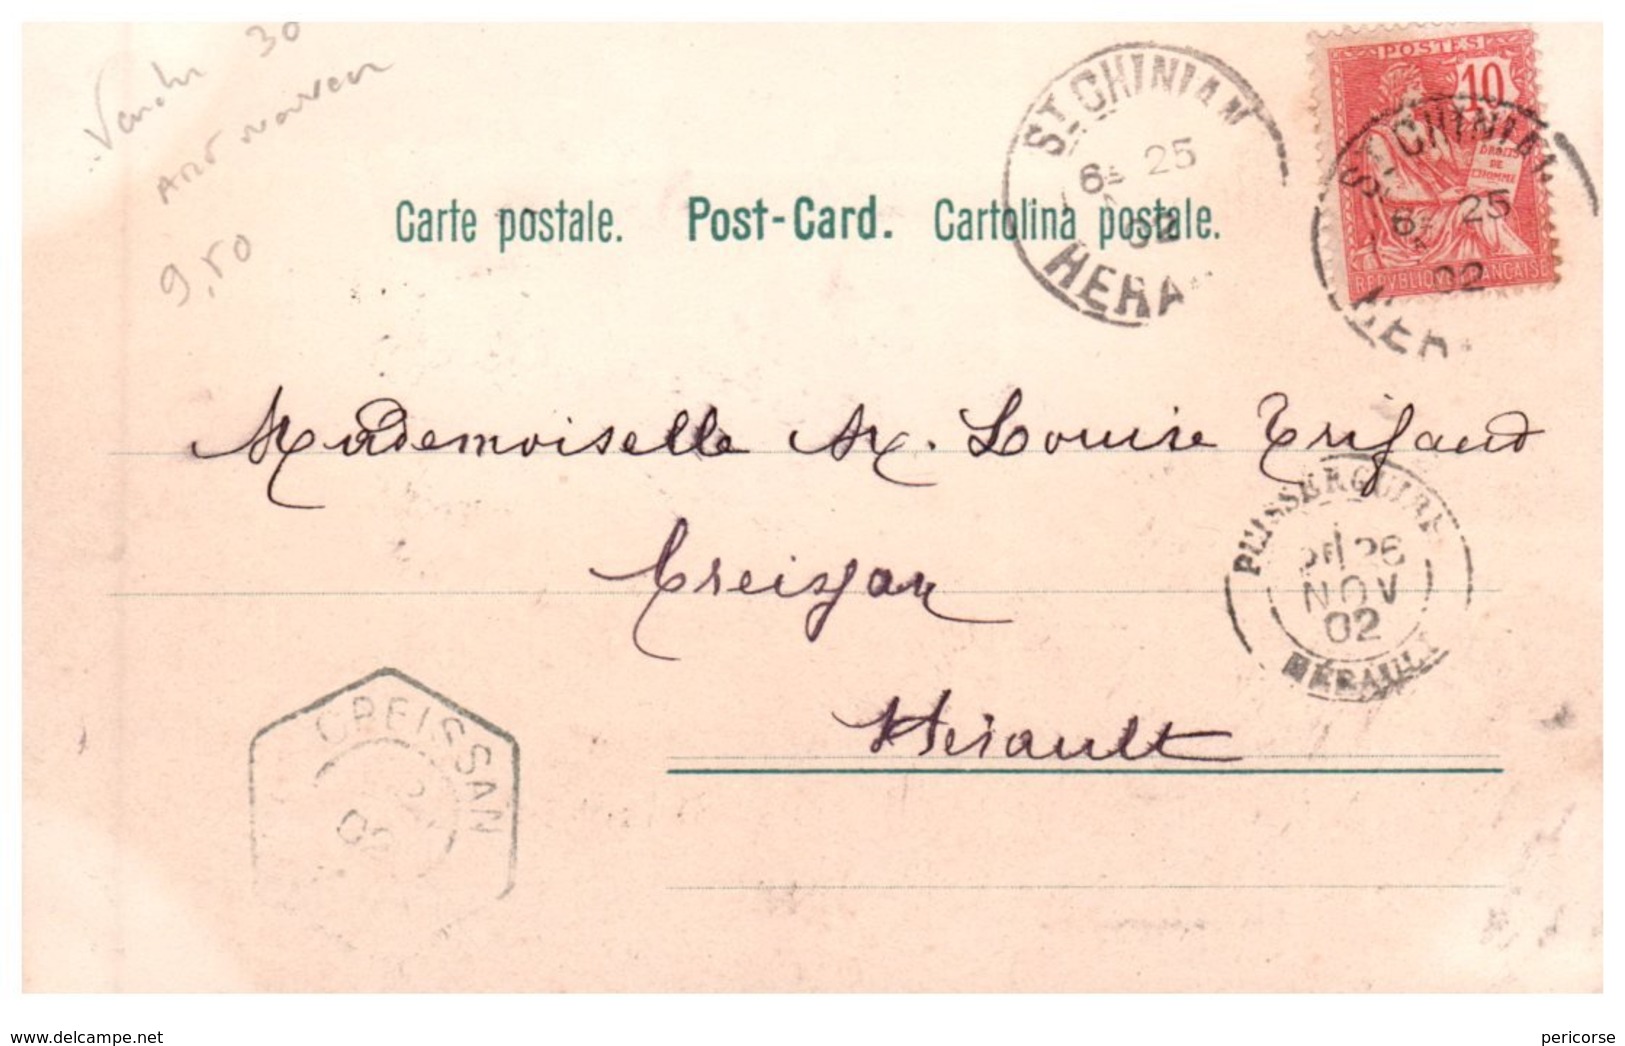 30
Art nouveau
9,50
Carte postale. Post-Card. Cartolina postale.
ST CHINIAN
6E 25
02
HERA
POSTES
10
DROITS
DE
L'HOMME
REPVBLIQVE FRANÇAISE
ST CHINIAN
6E 25
02
HER
Mademoiselle M. Louise Trifaud
Creissan
Hérault
PUISSERGUIER
26
NOV
02
HÉRAULT
CREISSAN
02
www.delcampe.net
pericorse